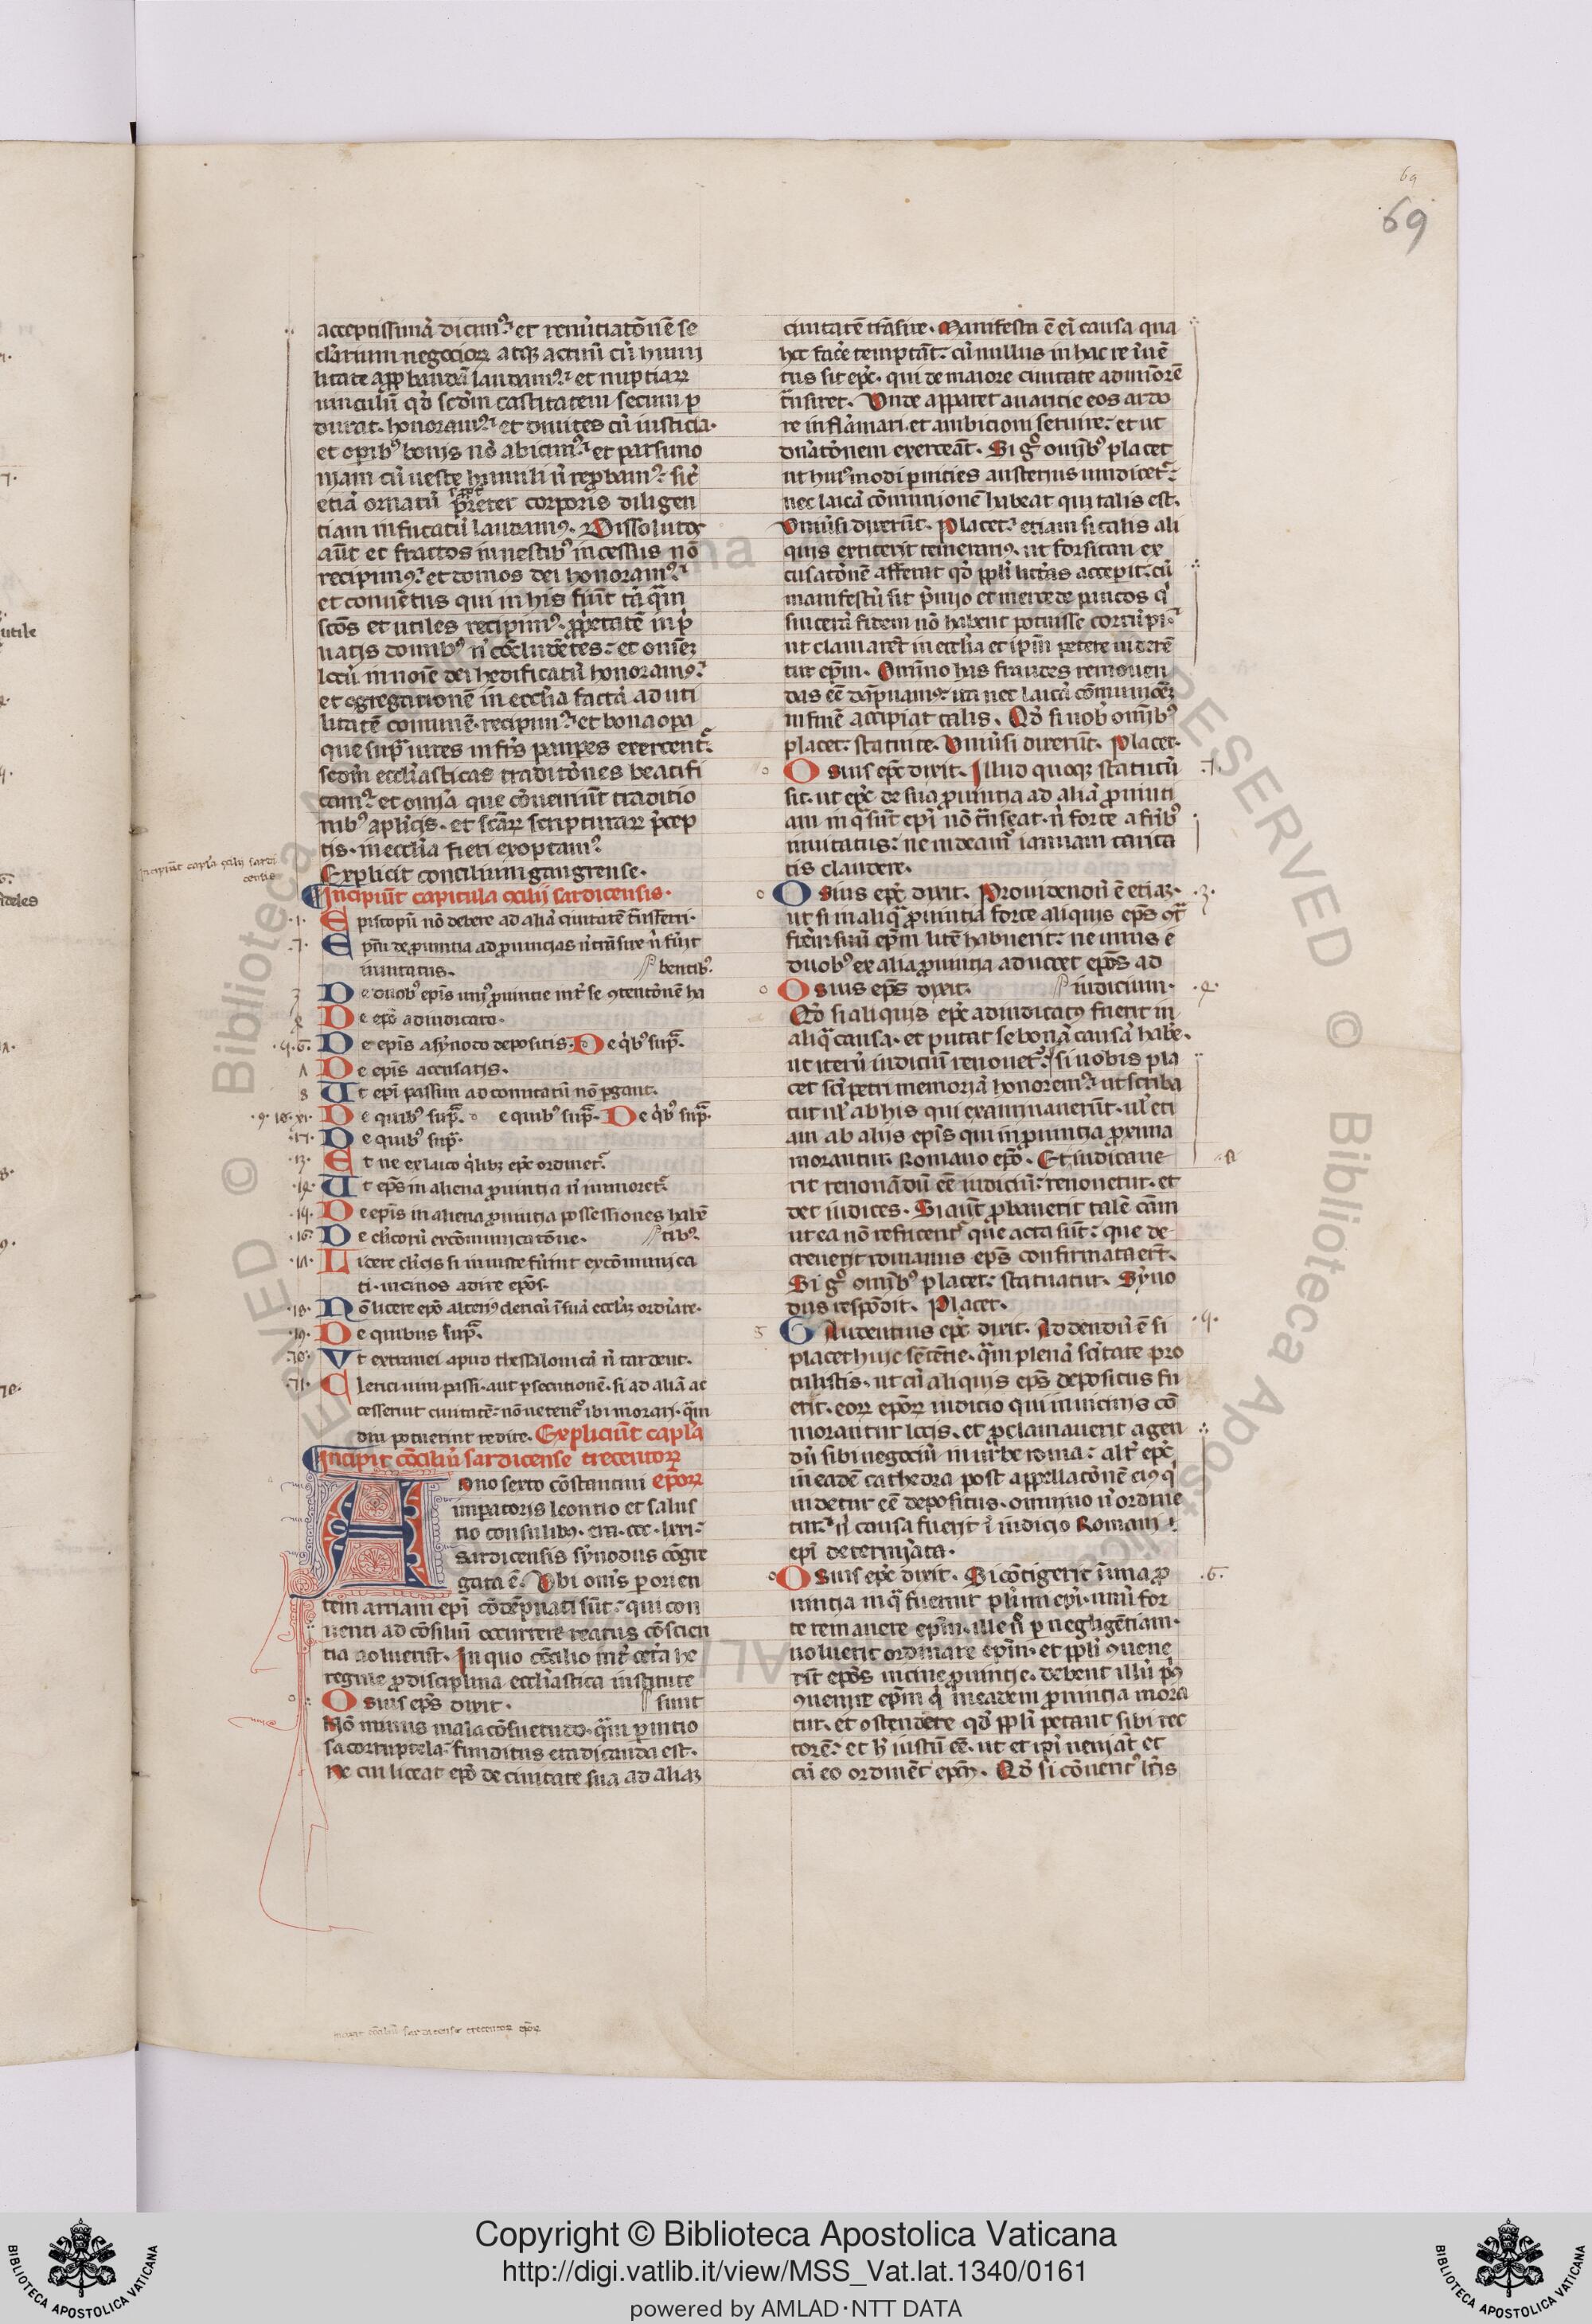 69
69
acceptissimā dicimꝰ. et renūtiatōnē se
clarium negocioꝝ atqꝫ actuū cū humi
litate approbandā laudamꝰ. et nuptiaꝝ
uinculū qđ scđm castitatem secum p
durat. honoramꝰ. et diuites cū iusticia.
et opibꝰ bonis nō abicimꝰ. et parsimo
niam cū ueste humili ñ reprobamꝰ. sic̄
etiā ornatū preter corporis diligen
tiam infucatū laudamꝰ. Dissolutos
aūt et fractos in uestibꝰ incessus nō
recipimꝰ. et domos dei honoramꝰ.
et conuētus qui in his fiūt tā q̄m
scōs et utiles recipimꝰ. pietatē in p̄
uatis domibꝰ ñ cōcludētes. et omēꝫ
locū in noīe dei hedificatū honoramꝰ.
et ꝯgregationē in ecclīa factā ad uti
litatē comunē. recipimꝰ. et bona opa
que supra uires in frīs pauꝑes exercent̄.
scđm eccl̄iasticas traditōnes beatifi
camꝰ. et omīa que cōueniūt traditio
nibꝰ apl̄icis. et scāꝝ scripturaꝝ p̄cep
tis. in ecclīa fieri exoptamꝰ.
Explicit concilium gangrense.
Incipiūt capl̄a ꝯcilij sardi
censis
Incipiūt capitula ꝯcilij sardicensis.
.1. Episcopū nō debere ad aliā ciuitatē t̄nsferri.
.7. Epīm de prouintia ad prouincias ñ trāsire ñ fūit
inuitatus. bentibꝰ.
3 De duobꝰ epīs uniꝰ prouintie int̄ se ꝯtentōnē ha
De epō adiudicato.
.q.6. De epīs a synodo depositis. De q̄bꝰ sup̄.
ʌ De epīs accusatis.
8 Ut epī passim ad comitatū nō pgant.
.9. 10. xi. De quibꝰ sup̄. e quibꝰ sup̄. De q̄bꝰ sup̄.
.17. De quibꝰ sup̄.
.13. Et ne ex laico q̄libꝫ epc̄ ordinet̄.
Ut epūs in aliena prouintia ñ inmoret̄.
.14. De epīs in aliena prouintia possessiones habē
.16. De cl̄icorū excōmunicatōne. tibꝰ.
.1ʌ. Licere cl̄icis si iniuste fūint excōmunica
ti. uicinos adire epōs.
.18. Nō licere epō alteriꝰ clericū ī suā eccl̄iaꝫ ordīare.
.19. De quibus sup̄.
.70. Vt extranei apud thessalonicā ñ tardent.
.71. Clerici uim passi. aut psecutionē. si ad aliā ac
cesserint ciuitatē. nō uetent̄ ibi morari. q̄m
diu potuerint redire. Expliciūt capl̄a
Incipit cōciliū sardicense trecentoꝝ
Anno sexto cōstantini epōꝝ
impatoris leontio et salus
tio consulibꝰ. era. ccc. lxxi.
sardicensis synodus cōgre
gata ē. Vbi omīs p orien
tem arriani epī cōdēpnati sūt. qui con
uenti ad cōsiliū occurrere reatus cōscien
tia noluerūt. In quo cōcilio int̄ cet̄a he
regule pro disciplina eccl̄iastica institute
Osius epūs dixit. sunt
Nō minus mala cōsuetudo. q̄m pnitio
sa corruptela. funditus eradicanda est.
ne cui liceat epō de ciuitate sua ad aliaꝫ
ciuitatē trāsire. Manifesta ē eī causa qua
hec facere temptāt. cū nullus in hac re īuē
tus sit epc̄. qui de maiore ciuitate ad minorē
trāsiret. Vnde apparet auaritie eos ardo
re inflāmari. et ambicioni seruire. et ut
dn̄atōnem exerceāt. Si gͦ omībꝰ placet
ut huiꝰmodi pnicies austerius uindicet̄.
nec laicā cōmunionē habeat qui talis est.
Vniūsi dixerūt. Placet. etiam si talis ali
quis extiterit temerariꝰ. ut forsitan ex
cusatōnē afferat qđ ppl̄i litt̄as accepit. cū
manifestū sit p̄mijo et mercede paucos q̄
sincerā fidem nō habent potuisse corrūpi.
ut clamarēt in ecclīa et ipīm petere uiderē
tur epīm. Omīno has fraudes remouen
das eē dāpnamꝰ. ita nec laicā cōmunioēꝫ
in fine accipiat talis. Qđ si uob̄ omībꝰ
placet. statuite. Vniūsi dixerūt. Placet.
Osius epc̄ dixit. Illud quoqꝫ statutū .7.
sit. ut epc̄ de sua prouintia ad aliā prouinti
am in q̄ sūt epī nō trāseat. ñ forte a frībꝰ
inuitatus. ne uideamꝰ ianuam carita
tis claudere.
Osius epc̄ dixit. Prouidendū ē etiaꝫ. .3.
ut si in aliq̄ prouintia forte aliquis epūs ꝯt̄
frēm suū epīm litē habuerit. ne unus e
duobꝰ ex alia prouintia aduocet epōs ad
Osius epūs dixit. iudicium.
Qđ si aliquis epc̄ adiudicatꝰ fuerit in
aliq̄ causa. et putat se bonā causā habe.
ut iterū iudiciū renouet̄. si uobis pla
cet scī petri memoriā honoremꝰ. ut scriba
tur ul̄ ab his qui examinauerūt. ul̄ eti
am ab aliis epīs qui in prouintia proxima
morantur. Romano epō. Et iudicaue
rit renouādū eē iudiciū. renouetur. et
det iudices. Si aūt probauerit talē cām
ut ea nō refricent̄ que acta sūt. que de
creuerit romanus epūs confirmata erūt.
Si gͦ omībꝰ placet. statuatur. Syno
dus respōdit. Placet.
Gaudentius epc̄ dixit. Addendū ē si .q.
placet huic sētētie. q̄m plenā scītate pro
tulistis. ut cū aliquis epūs depositus fu
erit. eoꝝ epōꝝ iudicio qui in uicinis cō
morantur locis. et proclamauerit agen
dū sibi negociū in urbe roma. alt̄ epc̄
in eadē cathedra post appellatōnē eiꝰ q̄
uidetur eē depositus. omnino ñ ordine
tur. ñ causa fuerit ī iudicio Romani
epī determīata.
Osius epc̄ dixit. Si cōtigerit ī una pro .6.
uintia in q̄ fuerint pl̄imi epī. unū for
te remanere epīm. ille ū p negligētiam.
noluerit ordinare epīm. et ppl̄i ꝯuene
rīt epōs uicine prouintie. debent illū pͥꝰ
ꝯuenire epīm q̄ in eadem prouintia mora
tur. et ostendere qđ ppl̄i petant sibi rec
torē. et h̄ iustū eē. ut et ipī ueniāt et
cū eo ordinēt epm̄. Qđ si cōuentꝰ lr̄is
Incipit cōciliū sardicense trecentoꝝ epōꝝ
Copyright © Biblioteca Apostolica Vaticana
http://digi.vatlib.it/view/MSS_Vat.lat.1340/0161
powered by AMLAD·NTT DATA
BIBLIOTECA APOSTOLICA VATICANA
BIBLIOTECA APOSTOLICA VATICANA